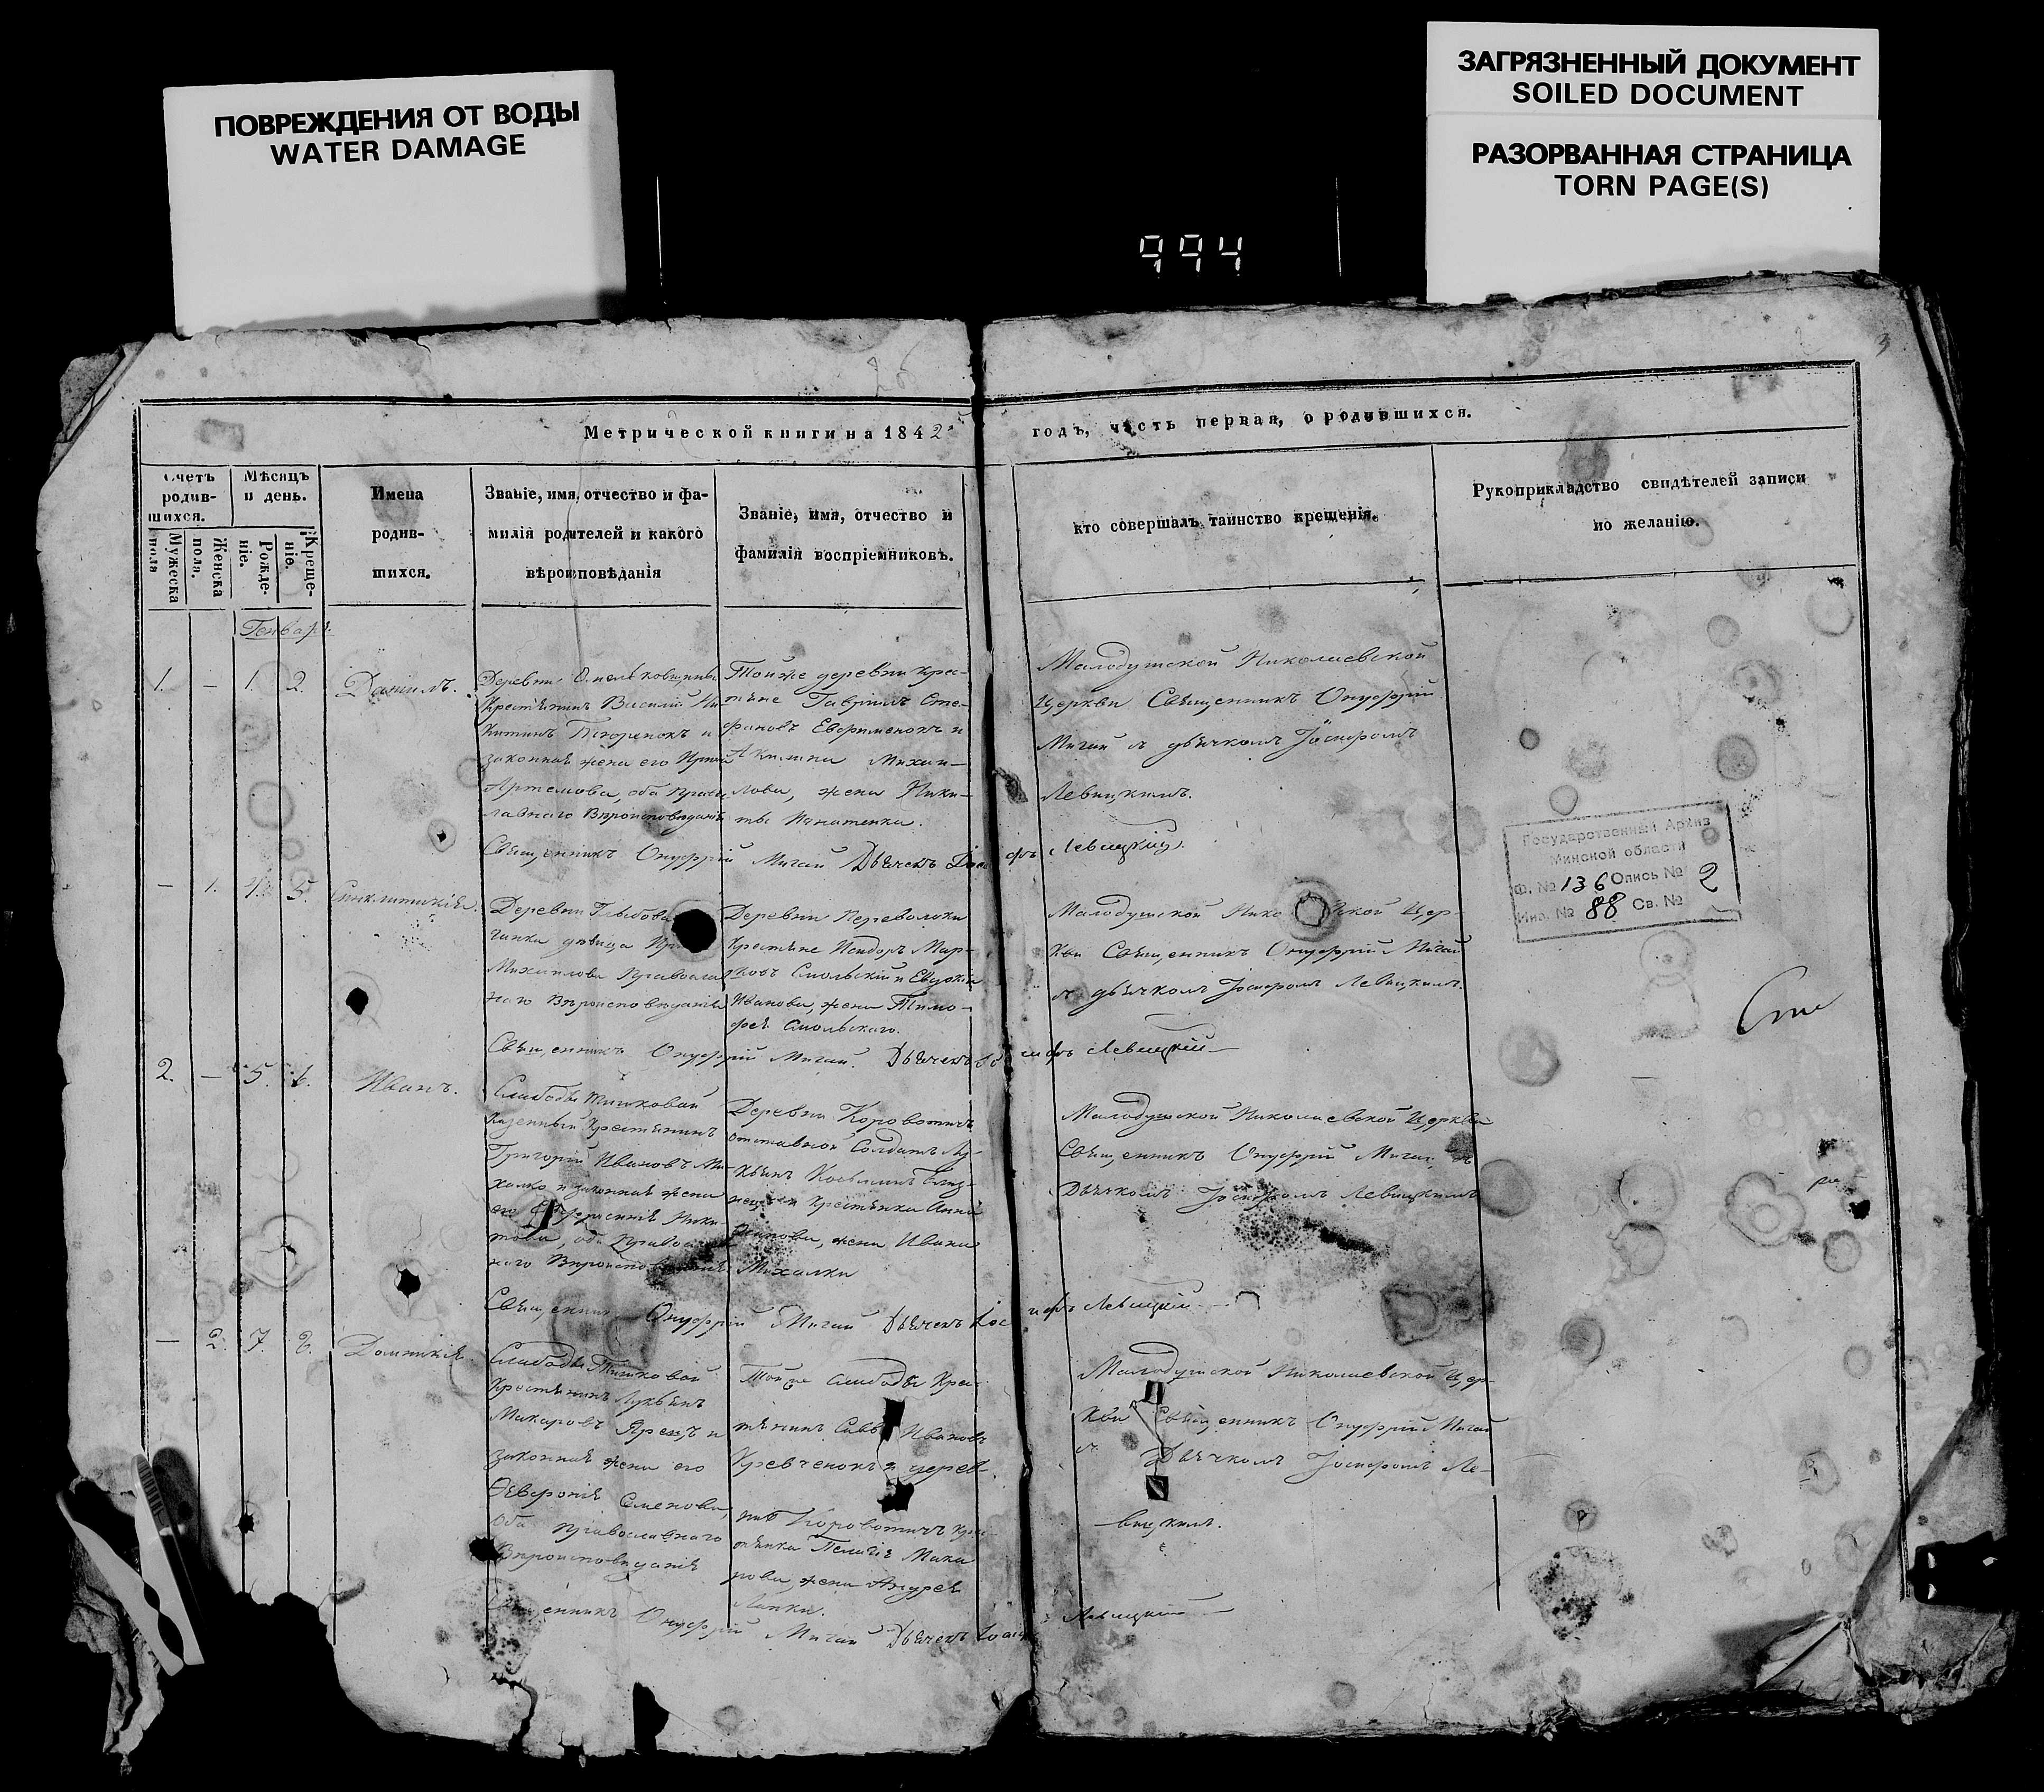 ПОВРЕЖДЕНИЯ ОТ ВОДЫ
WATER DAMAGE
ЗАГРЯЗНЕННЫЙ ДОКУМЕНТ
SOILED DOCUMENT
РАЗОРВАННАЯ СТРАНИЦА
TORN PAGE(S)
994
26
3
Метрической книги на 1842 годъ, часть первая, о родившихся.
Счетъ родив-шихся.
Мужеска пола
Женска пола.
Мѣсяцъ и день.
Рожде-ніе.
Креще-ніе.
Имена
родив-
шихся.
Званіе, имя, отчество и фа-
милія родителей и какого
вѣроисповѣданія
Званіе, имя, отчество и
фамилія воспріемниковъ.
кто совершалъ таинство крещенія.
Рукоприкладство свидѣтелей записи
по желанію.
Генваря.
1. — 1. 2.
Даніилъ.
Деревни
Крестьянинъ Василій Ни-
китинъ и
законная жена его Ирина
Артемова, оба Право-
славнаго Вѣроисповѣданія
Тойже деревни крес-
тьяне Гавріилъ Сте-
фановъ Ефрименокъ и
Михаи-
лова, жена Ники-
ты Игнатенка.
Малодушской Николаевской
Церкви Священникъ Онуфрій
Мигай съ дьячкомъ Іосифомъ
Левицкимъ.
Священникъ Онуфрій Мигай Дьячекъ Іосифъ Левицкій.
— 1. 5.
Синклитикія.
Деревни
дѣвица
Михайлова Православ
наго Вѣроисповѣданія
Деревни Переволоки
Крестьяне Исидоръ Мар-
ковъ Смольскій и Евдокія
Иванова, жена Тимо-
фея Смольскаго.
Малодушской Цер-
кви Священникъ Онуфрій Мигай
съ дьячкомъ Іосифомъ Левицкимъ.
Священникъ Онуфрій Мигай. Дьячекъ Іосифъ Левицкій
2. — 5. 6.
Иванъ.
Слободы
Казенный Крестьянинъ
Григорій Ивановъ Ми-
халко и законная жена
его Ефросинія Ники
това, оба Православ
наго Вѣроисповѣданія
Деревни Коровотичъ
отставной Солдатъ Лу-
кьянъ Косьминъ
Крестьянка Анна
жена Ивана
Михалки
Малодушской Николаевской Церкви
Священникъ Онуфрій Мигай съ
Дьячкомъ Іосифомъ Левицкимъ
Священникъ Онуфрій Мигай Дьячекъ Іосифъ Левицкій
— 2. 7.
Домникія.
Слободы
Крестьянинъ Лукьянъ
Макаровъ и
законная жена его
Февронія Семенова,
оба Православнаго
Вѣроисповѣданія
Тойже слободы Крес-
тьянинъ Савва Ивановъ
Кравченокъ и дерев-
ни Коровотичъ крес-
тьянка Пелагія Мака
рова, жена Андрея
Лапки.
Малодушской Николаевской Цер-
кви Священникъ Онуфрій Мигай
съ Дьячкомъ Іосифомъ Ле-
вицкимъ.
Священникъ Онуфрій Мигай Дьячекъ Іосифъ Левицкій
Государственный Архив
Минской области
Ф. № 136 Опись № 2
Инв. № 88 Св. №